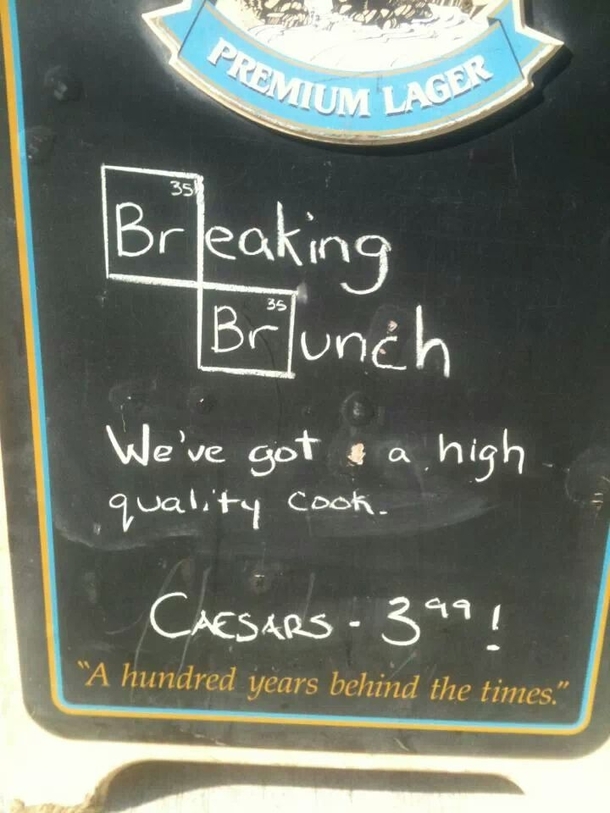 PREMIUM LAGER
35
Breaking
35
Brunch
We've got a high
quality cook.
CAESARS - 3 99!
"A hundred years behind the times."